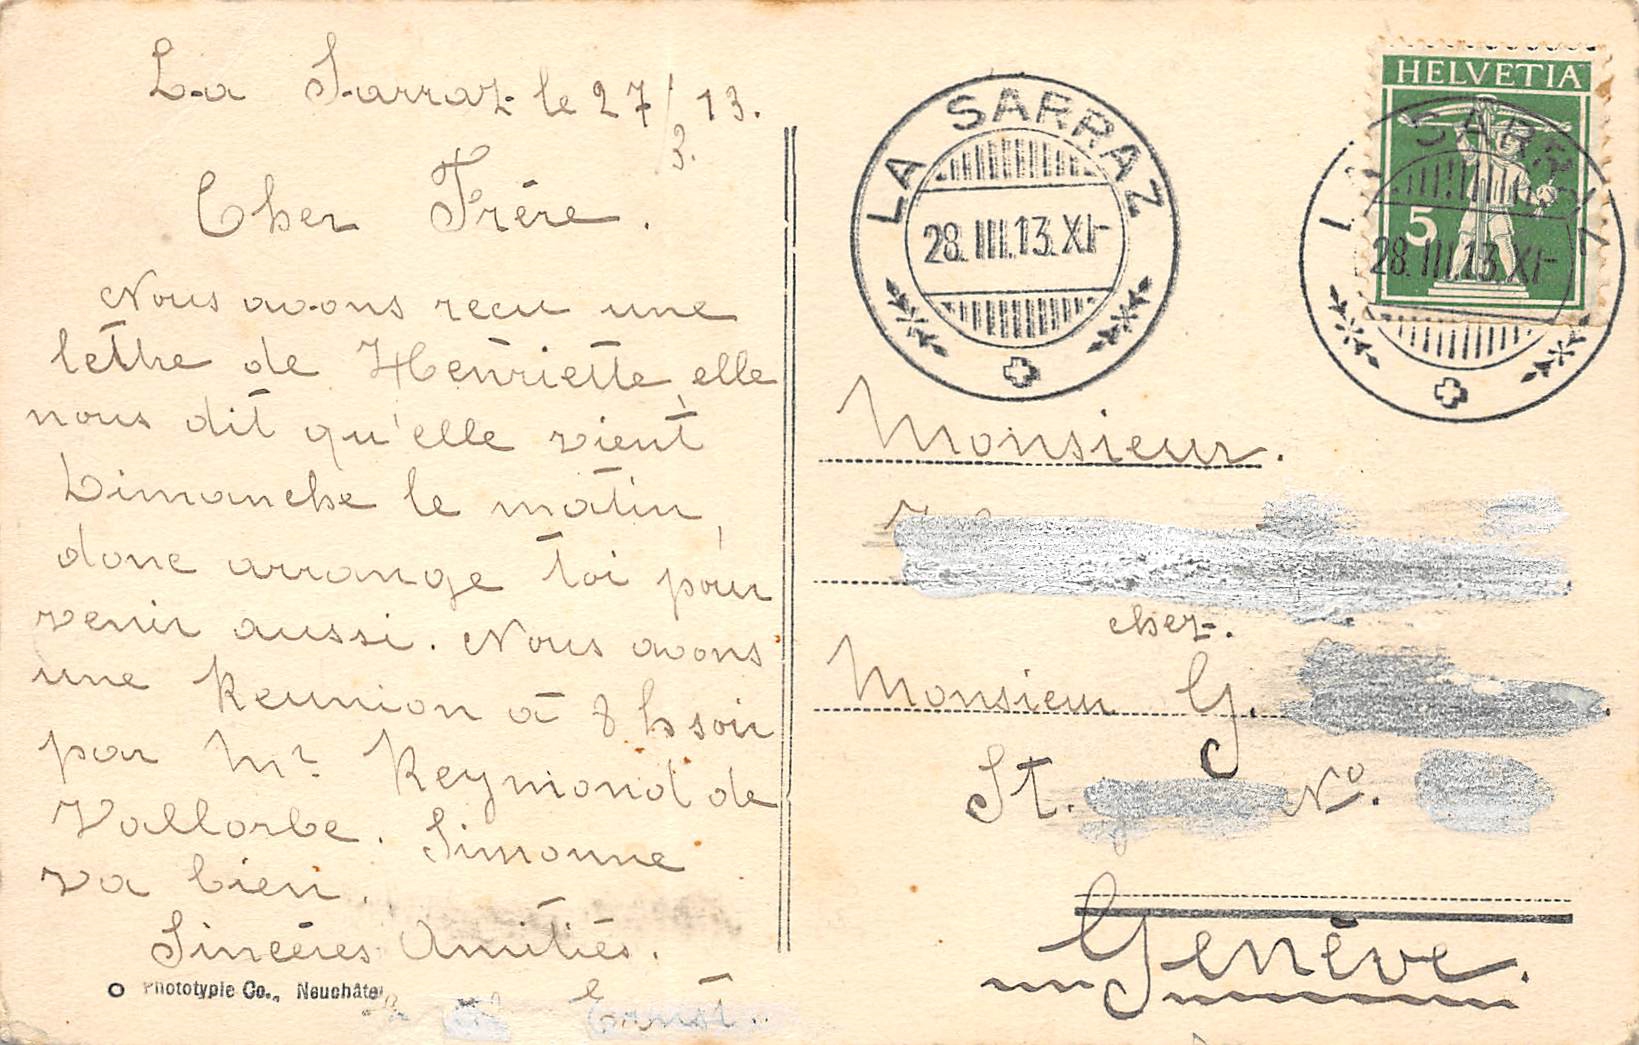 La Sarraz le 27/3. 13.
Cher Frère.
Nous avons recu une
lettre de Henriette, elle
nous dit qu'elle vient
Dimanche le matin,
donc arrange toi pour
venir aussi. Nous avons
une Reunion à 8 h soir
par Mr. Reymond de
Vallorbe. Simonne
va bien.
Sincères Amitiés.
Ernst.
Phototypie Co., Neuchâtel
LA SARRAZ
28.III.13.XI-
HELVETIA
5
LA SARRAZ
28.III.13.XI-
Monsieur.
chez.
Monsieur G.
St. No.
Genève.